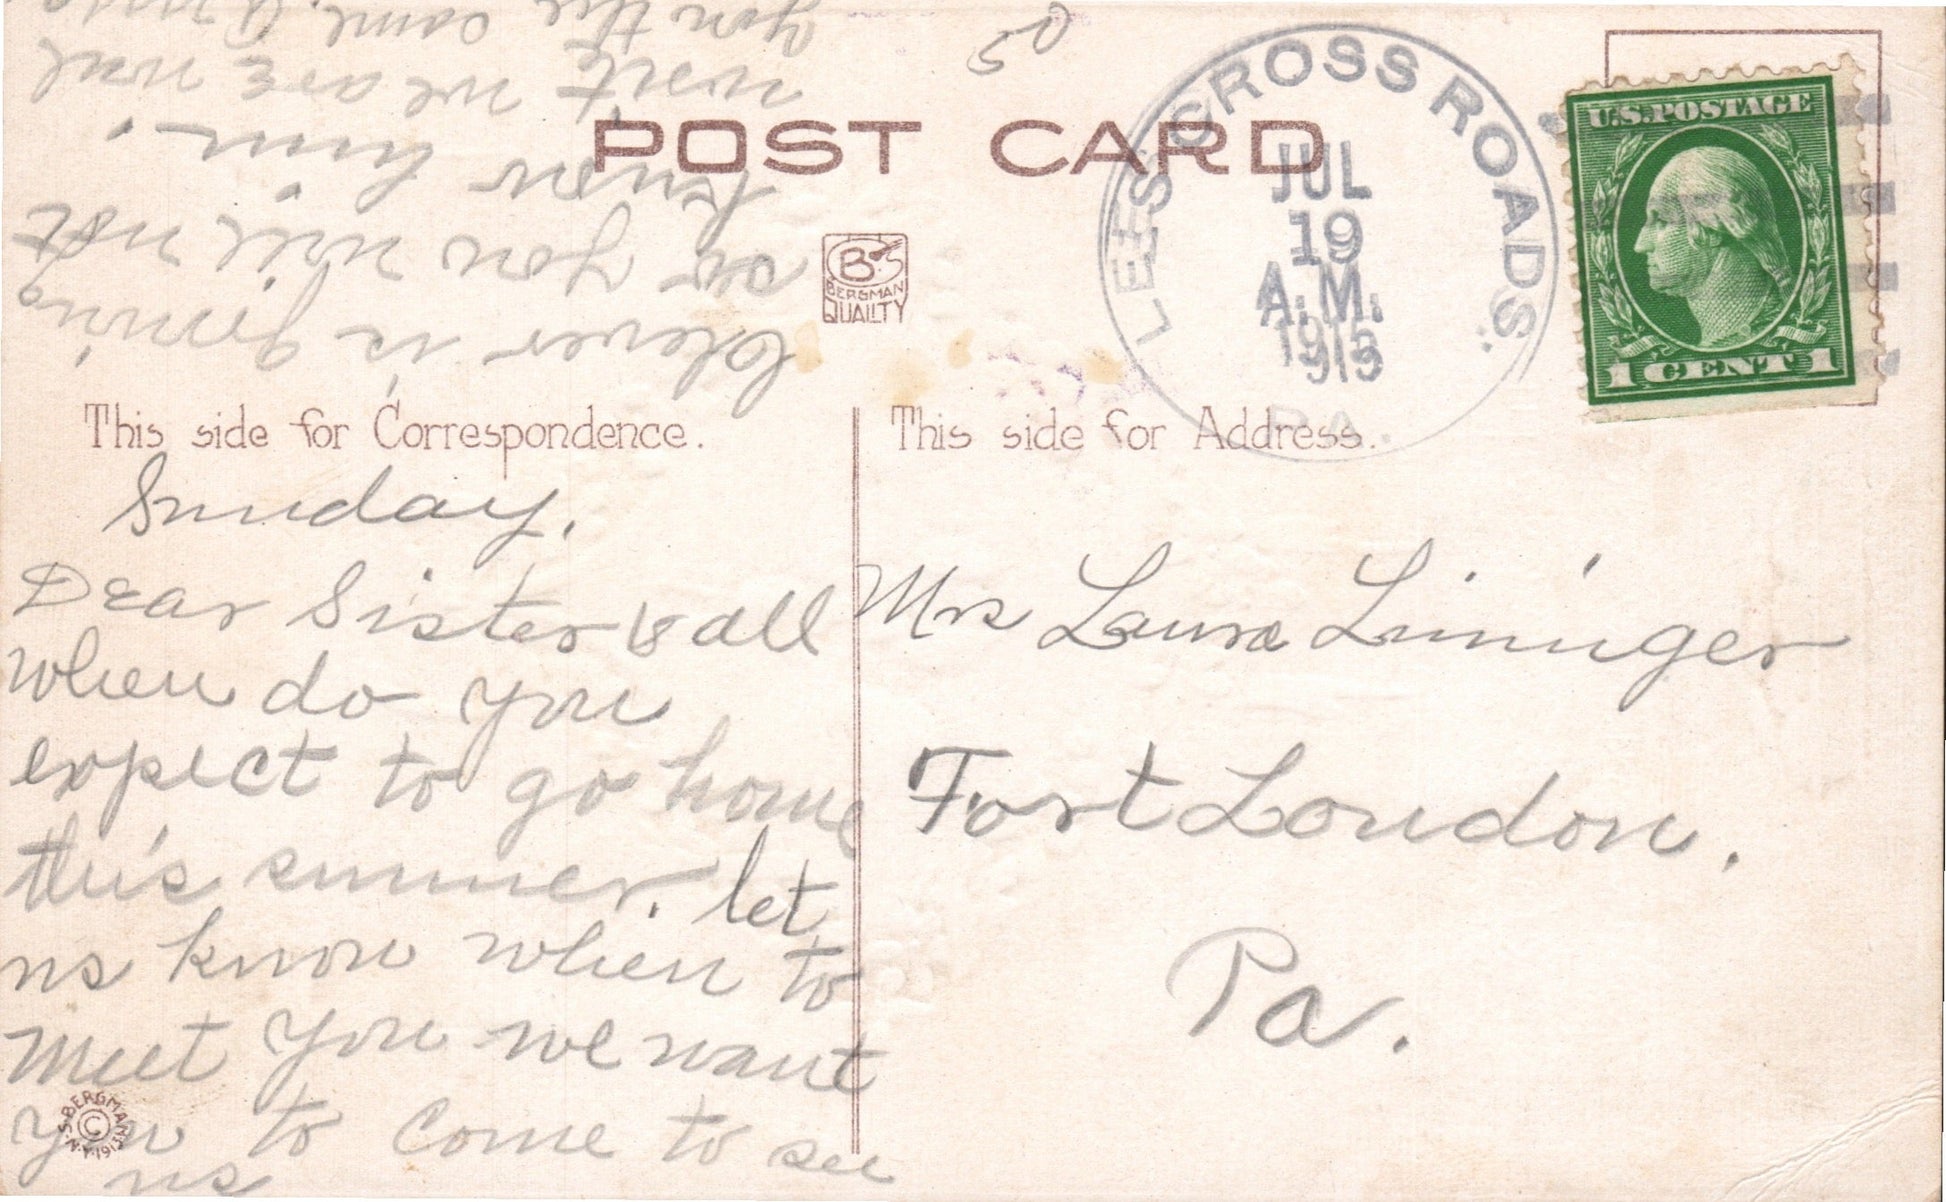 POST CARD
LEES CROSS ROADS.
JUL
19
A.M.
1915
PA.
U.S. POSTAGE
1 CENT 1
B S
BERGMAN
QUALITY
50
This side for Correspondence.
This side for Address.
Sunday.
Dear Sister & all
when do you
expect to go home
this summer. let
us know when to
meet you we want
you to come to see
us
Mrs Laura Lininger
Fort Loudon.
Pa.
is
so you will not
know him.
we are well
you the same.